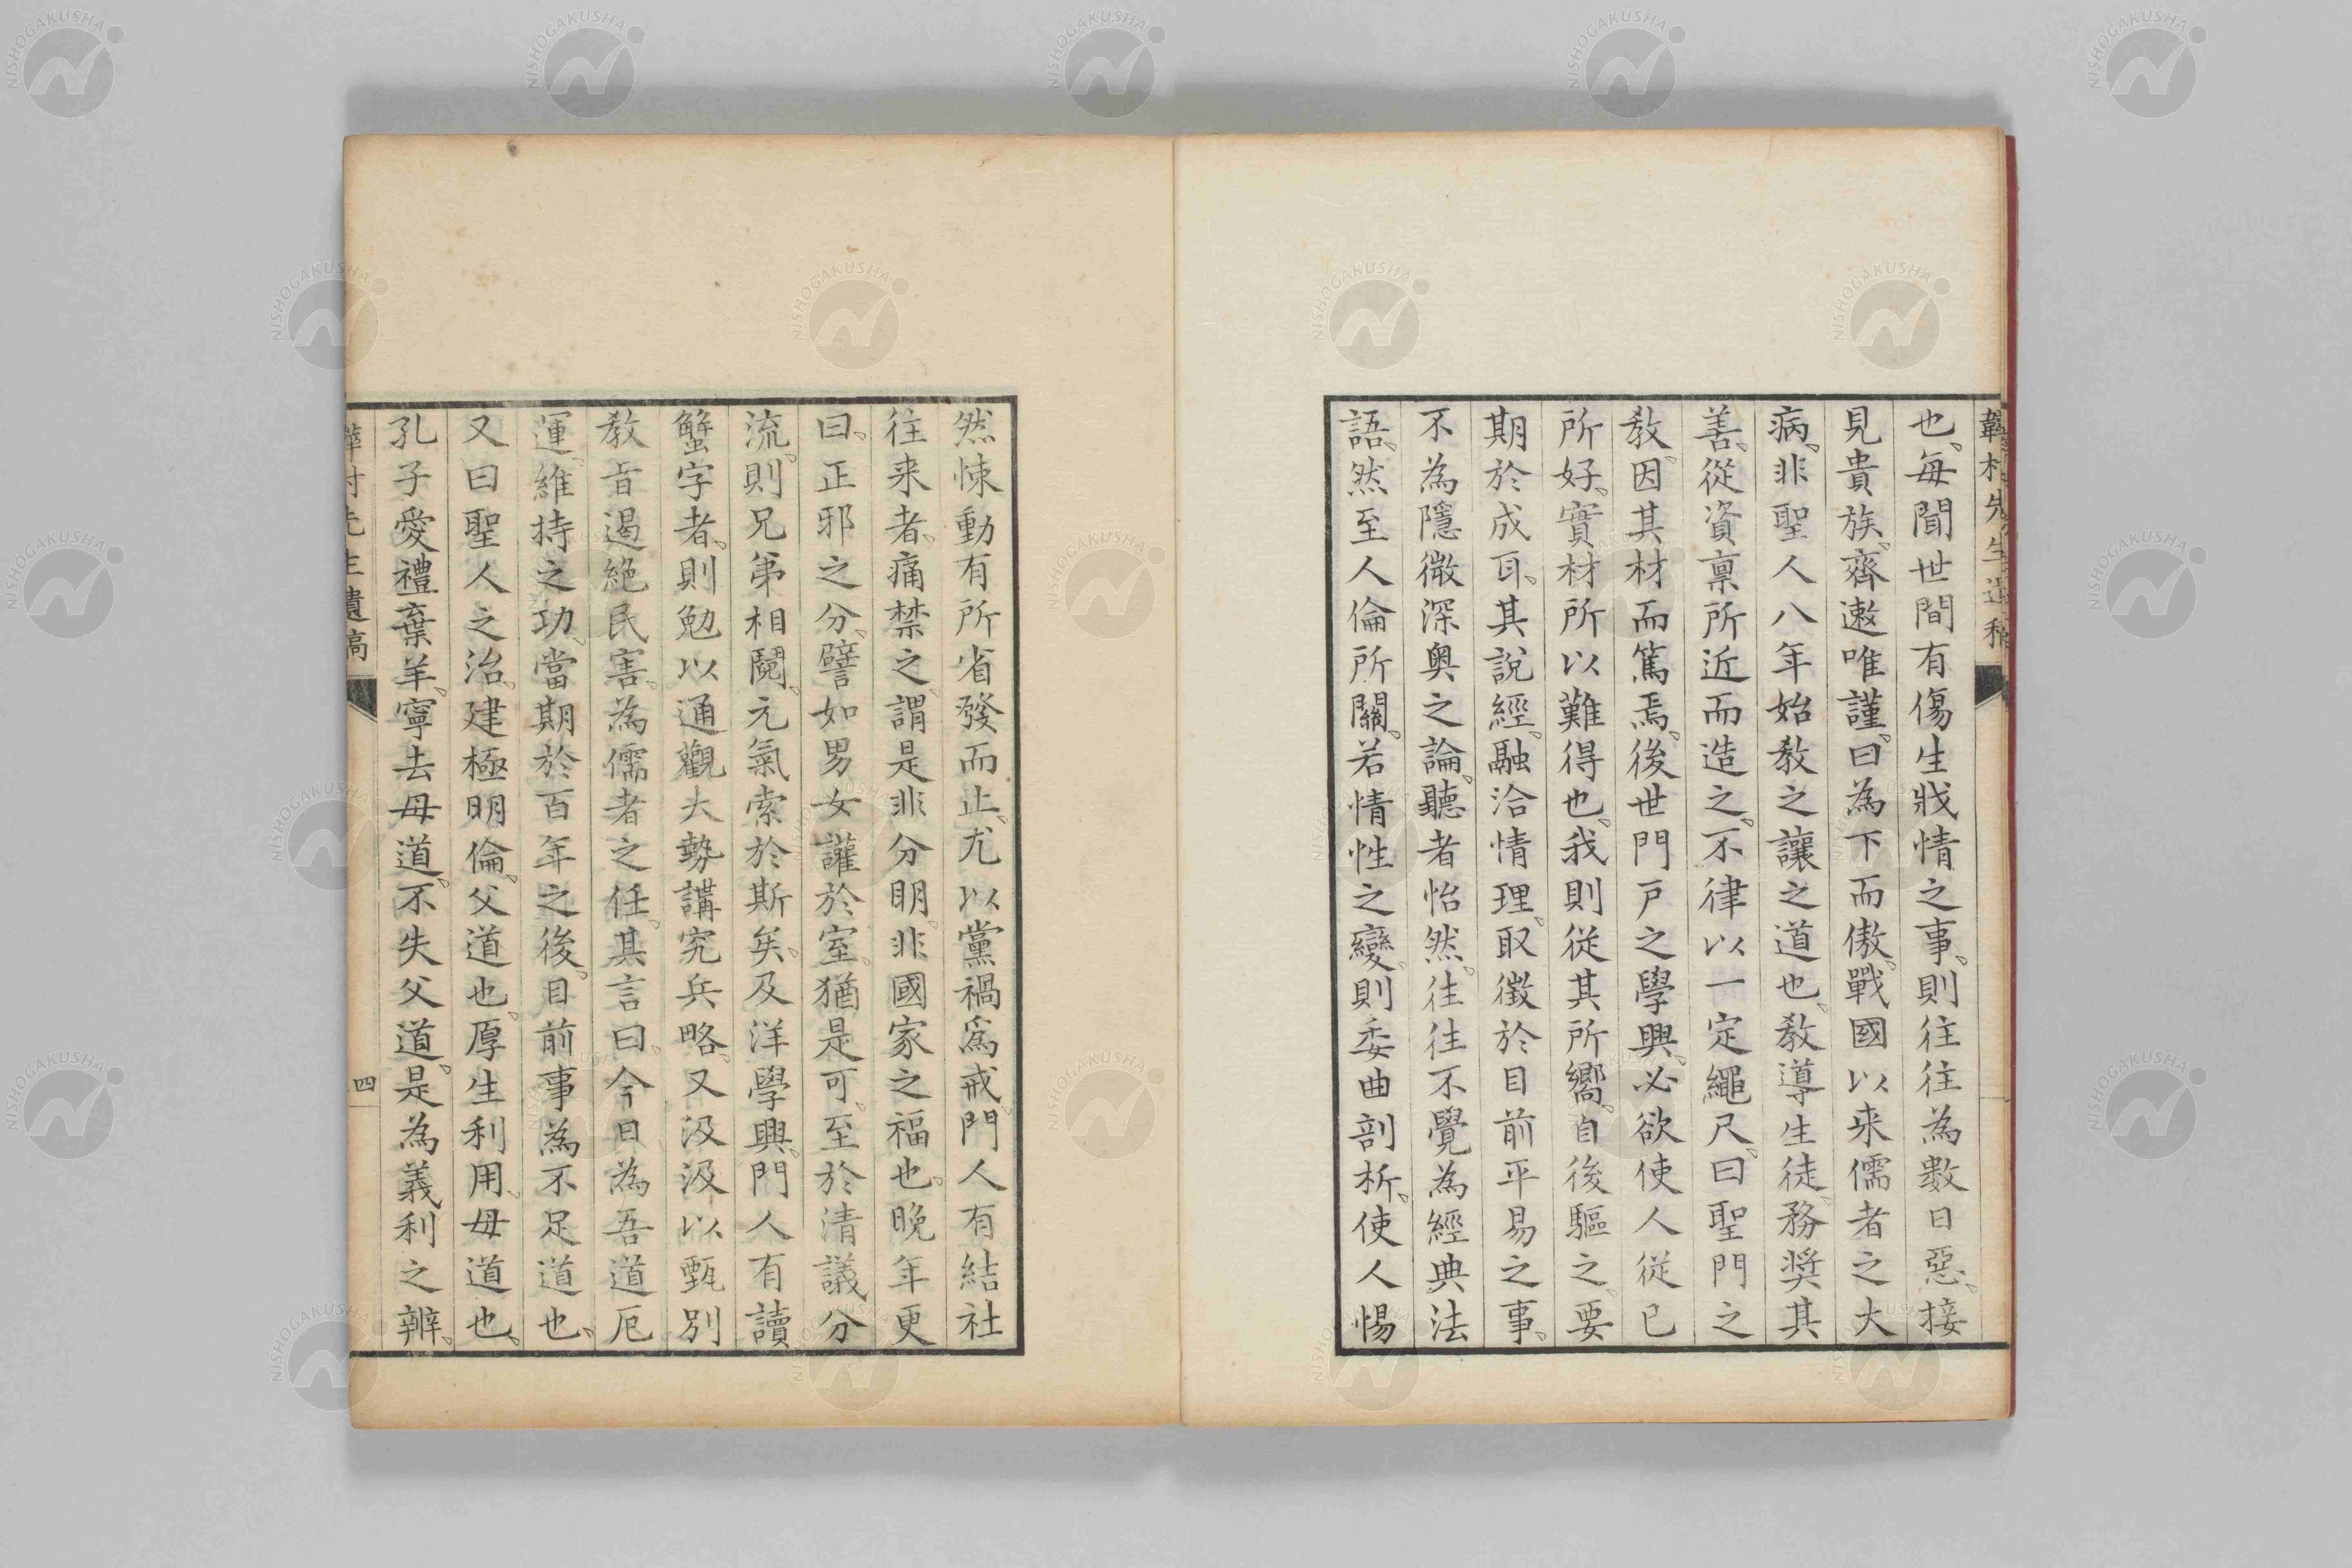 韡村先生遺稿
也。每聞世間有傷生戕情之事。則往往為數日惡。接
見貴族。齊遬唯謹。曰為下而傲。戰國以来儒者之大
病。非聖人八年始教之讓之道也。教導生徒。務奨其
善。從資稟所近而造之。不律以一定繩尺。曰聖門之
教。因其材而篤焉。後世門戸之學興。必欲使人從已
所好。實材所以難得也。我則從其所嚮。自後驅之。要
期於成耳。其說經。融洽情理。取徵於目前平易之事。
不為隱微深奥之論。聽者怡然。往往不覺為經典法
語。然至人倫所關。若情性之變。則委曲剖析。使人惕
然悚動有所省發而止。尤以黨禍爲戒。門人有結社
往来者。痛禁之。謂是非分明。非國家之福也。晚年更
曰。正邪之分。譬如男女讙於室。猶是可。至於清議分
流。則兄弟相鬩。元氣索於斯矣。及洋學興。門人有讀
蟹字者。則勉以通觀大勢講究兵略。又汲汲以甄別
教旨遏絶民害。為儒者之任。其言曰。今日為吾道厄
運。維持之功。當期於百年之後。目前事為不足道也。
又曰聖人之治。建極明倫。父道也。厚生利用。母道也。
孔子愛禮棄羊。寧去母道。不失父道。是為義利之辨。
韡村先生遺稿
四
NISHOGAKUSHA